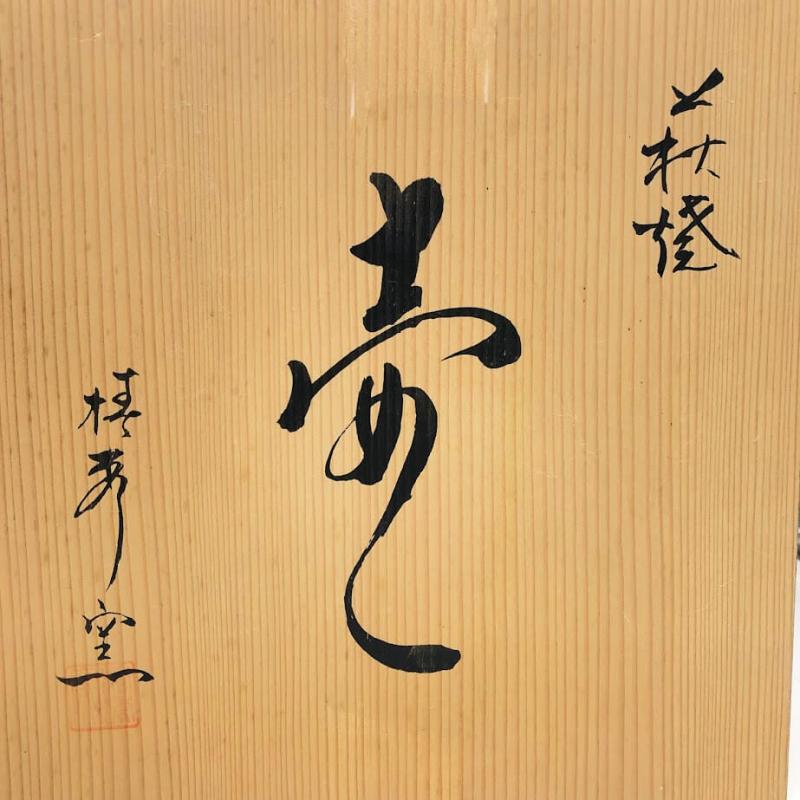 萩焼
壷
椿秀窯